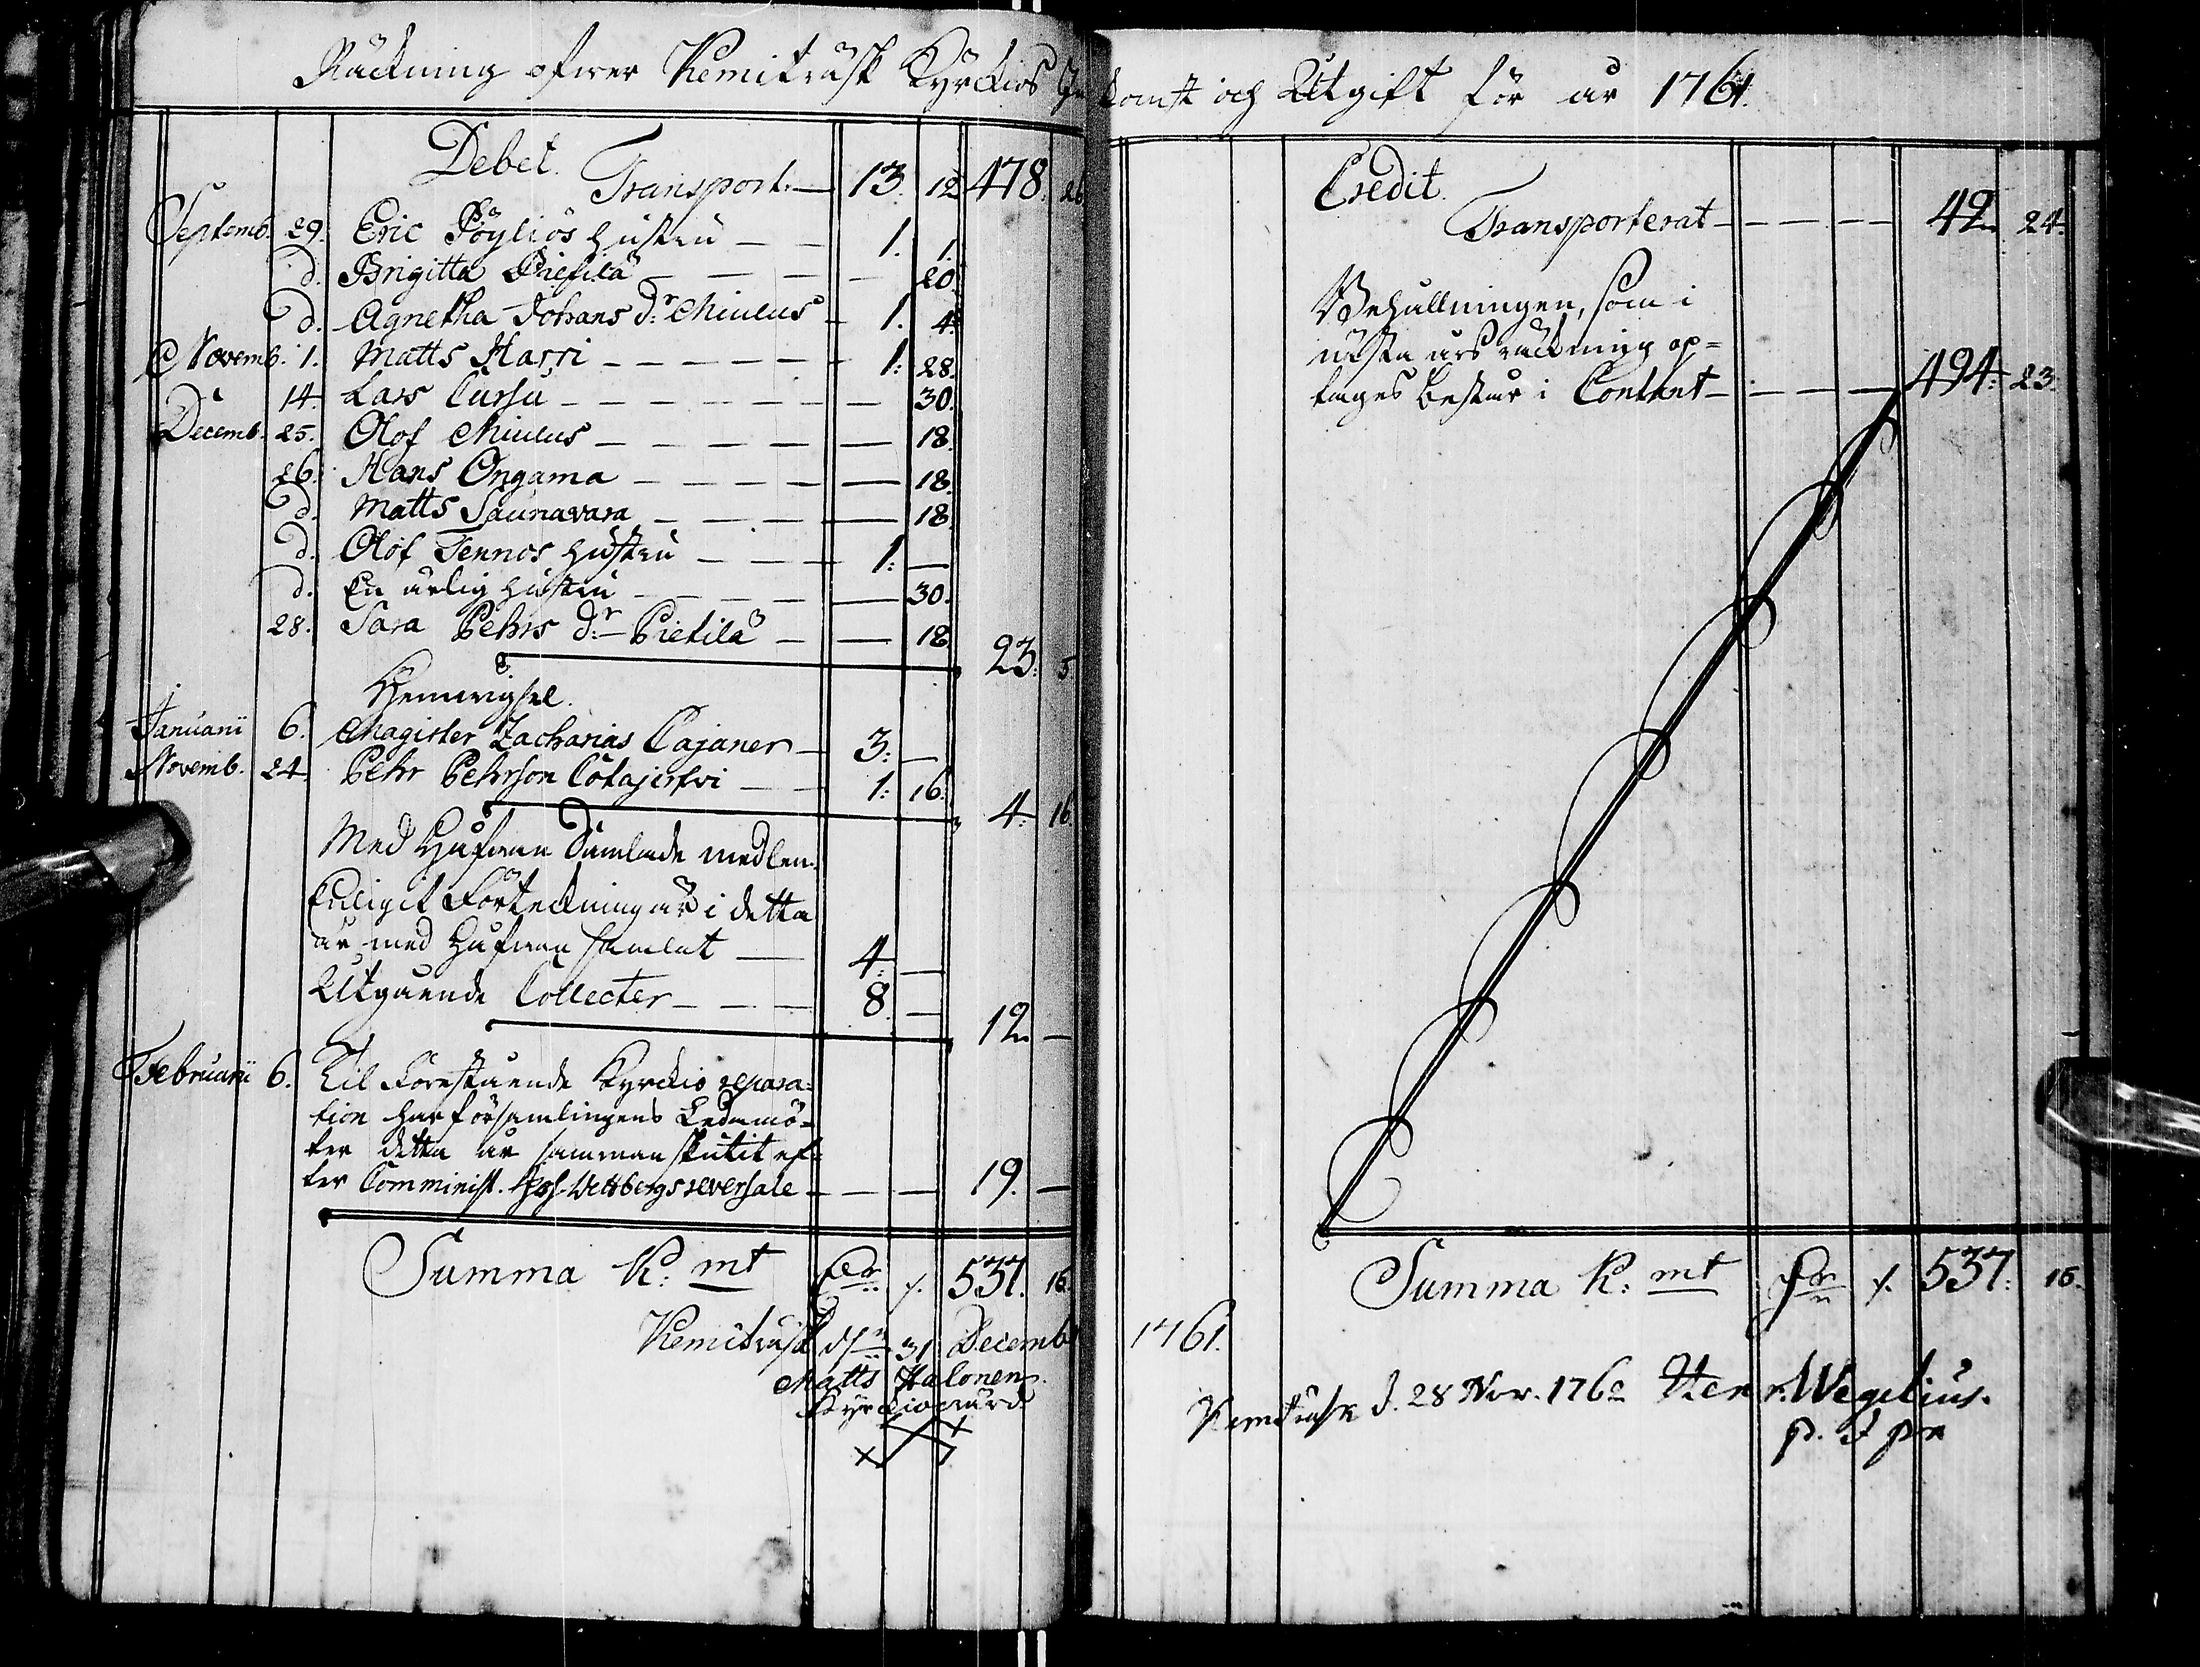 Räckning öfwer Kemiträsk Kyrckios In
Debet.
Transport. — 13. 12 478. 26
Septemb. 29. Eric Pöyliös hustru — — 1. 1.
d. Brigitta Pietilä — — — — 20.
d. Agnetha Johans d:r Miulus — 1. 4.
Novemb. 1. Matts Harri — — — — — 1: 28.
14. Lars Cursu — — — — — — 30.
Decemb. 25. Olof Miulus — — — — — 18.
26. Hans Ongama — — — — — 18.
d. Matts Saunavara — — — — 18.
d. Olof Tennos hustru — — — 1: —
d. En ärlig hustru — — — — 30.
28. Sara Pehrs d:r Pietilä — — 18.
23: 5
Hemvigsel.
Januarii 6. Magister Zacharias Cajaner — 3: —
Novemb. 24. Pehr Pehrson Cotajerfvi — — 1: 16.
4: 16.
Med Håfwan Samlade medlen.
Enligit Förteckning är i detta
år med Håfwan samlat — 4: —
Utgående Collecter — — — 8. —
12. —
Februarii 6. Til Förestående Kyrckio repara-
tion har församlingens Ledamö-
ter detta år sammanskutit ef-
ter Comminist. Wettbergs reversale — — — 19. —
Summa K: mt 537. 16.
Kemiträsk d. 31 Decemb
Matts Halonen.
Kyrckiovärd
komst och Utgift för år 1761.
Credit.
Transporterat — — — — 42. 24.
Behållningen, som i
nästa års räckning op-
tages består i Contant — — — — 494: 23.
Summa K: mt 537: 16.
1761.
Kemiträsk d. 28 Nov. 1762 Henr. Wegelius.